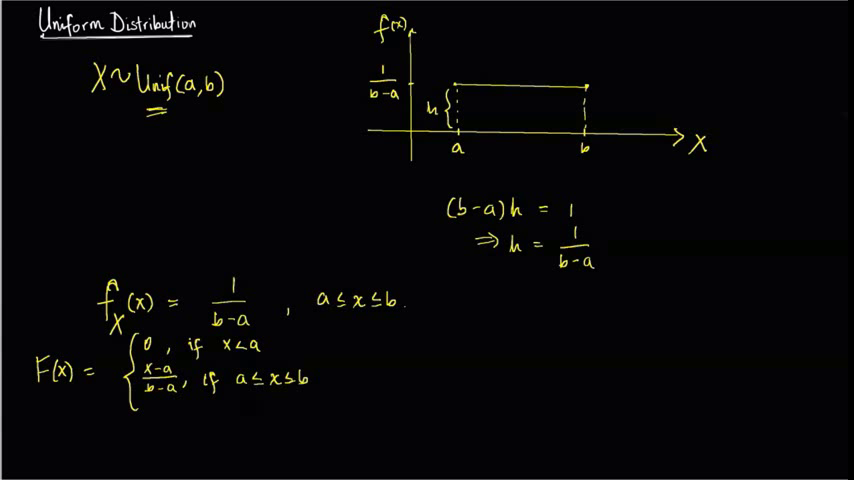 Uniform Distribution
X ~ Unif(a,b)
f(x)
1/(b-a)
h
a
b
X
(b-a)h = 1
⇒ h = 1/(b-a)
f_X(x) = 1/(b-a) , a ≤ x ≤ b.
F(x) = { 0 , if x < a
(x-a)/(b-a) , if a ≤ x ≤ b